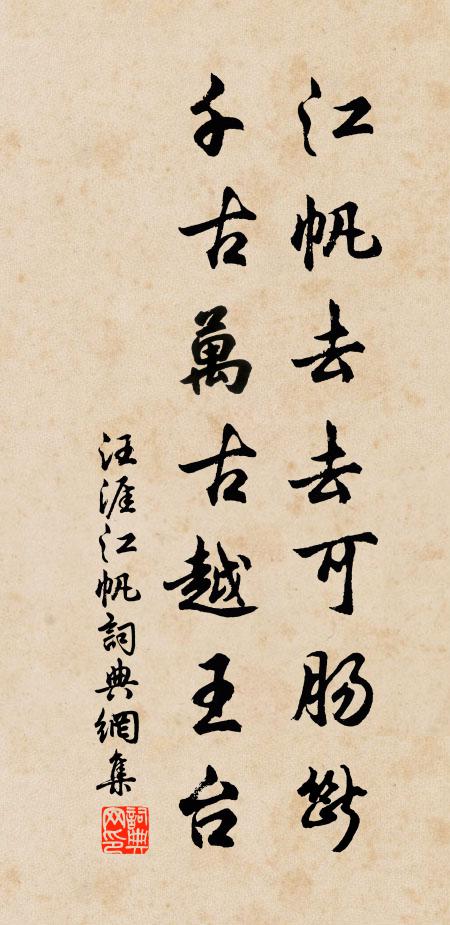 江帆去去可肠断
千古萬古越王台
汪涯江帆詞典網集
詞典网印